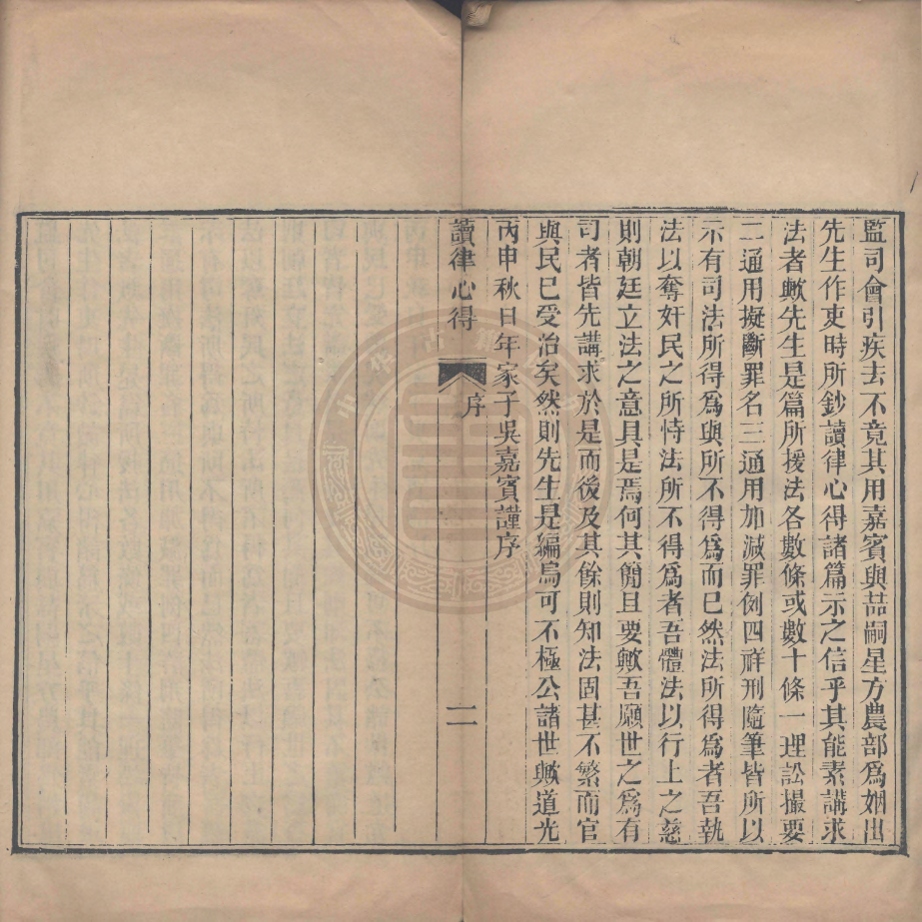 監司會引疾去不竟其用嘉賓與喆嗣星方農部爲姻出
先生作吏時所鈔讀律心得諸篇示之信乎其能素講求
法者歟先生是篇所援法各數條或數十條一理訟撮要
二通用擬斷罪名三通用加減罪例四祥刑隨筆皆所以
示有司法所得爲與所不得爲而已然法所得爲者吾執
法以奪奸民之所恃法所不得爲者吾體法以行上之慈
則朝廷立法之意具是焉何其簡且要歟吾願世之爲有
司者皆先講求於是而後及其餘則知法固甚不繁而官
與民已受治矣然則先生是編烏可不極公諸世歟道光
丙申秋日年家子吳嘉賓謹序
讀律心得 序 二